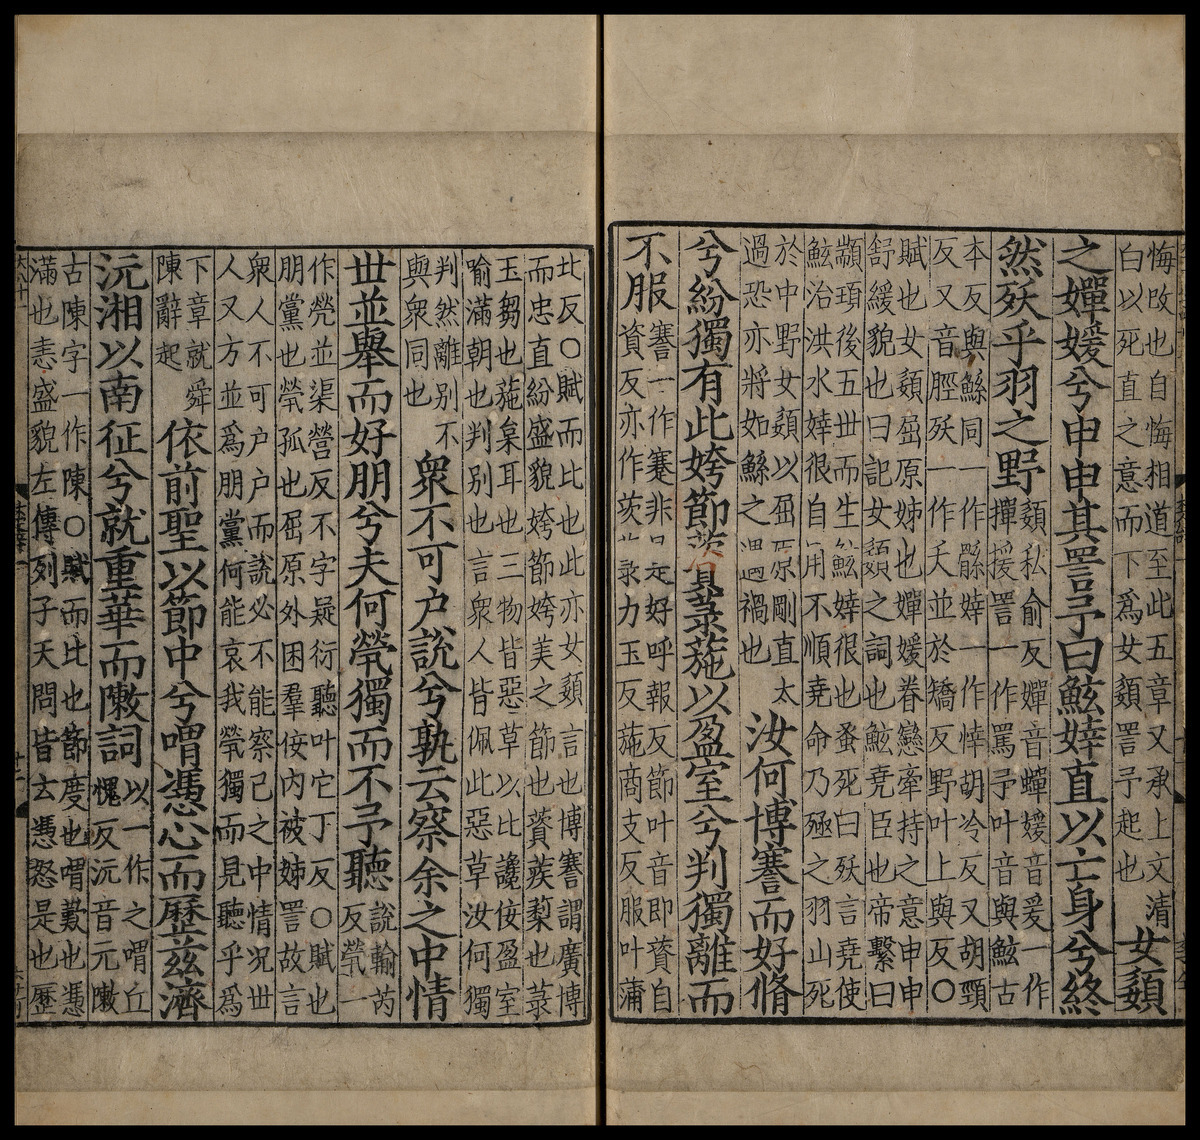 悔改也自悔相道至此五章又承上文清
白以死直之意而下為女嬃詈予起也
女嬃
之嬋媛兮申申其詈予曰鮌婞直以亡身兮終
然殀乎羽之野
嬃私俞反嬋音蟬媛音爰一作
撣援詈一作罵予叶音與鮌古
本反與鯀同一作縣婞一作悻胡冷反又胡頸
反又音脛殀一作夭並於矯反野叶上與反○
賦也女嬃屈原姊也嬋媛眷戀牽持之意申申
舒緩貌也曰記女嬃之詞也鮌堯臣也帝繫曰
顓頊後五世而生鮌婞很也蚤死曰殀言堯使
鮌治洪水婞很自用不順堯命乃殛之羽山死
於中野女嬃以屈原剛直太
過恐亦將如鯀之遇禍也
汝何博謇而好脩
兮紛獨有此姱節薋菉葹以盈室兮判獨離而
不服
謇一作蹇非是好呼報反節叶音即薋自
資反亦作茨菉力玉反葹商支反服叶蒲
北反○賦而比也此亦女嬃言也博謇謂廣博
而忠直紛盛貌姱節姱美之節也薋蒺藜也菉
王芻也葹枲耳也三物皆惡草以比讒佞盈室
喻滿朝也判別也言衆人皆佩此惡草汝何獨
判然離別不
與衆同也
衆不可户說兮孰云察余之中情
世並舉而好朋兮夫何煢獨而不予聽
說輸芮
反煢一
作㷀並渠營反不字疑衍聽叶它丁反○賦也
朋黨也煢孤也屈原外困羣佞內被姊詈故言
衆人不可户户而說必不能察己之中情况世
人又方並為朋黨何能哀我煢獨而見聽乎為
下章就舜
陳辭起
依前聖以節中兮喟憑心而歷茲濟
沅湘以南征兮就重華而敶詞
以一作之喟丘
愧反沅音元敶
古陳字一作陳○賦而比也節度也喟歎也憑
滿也恚盛貌左傳列子天問皆云憑怒是也歷